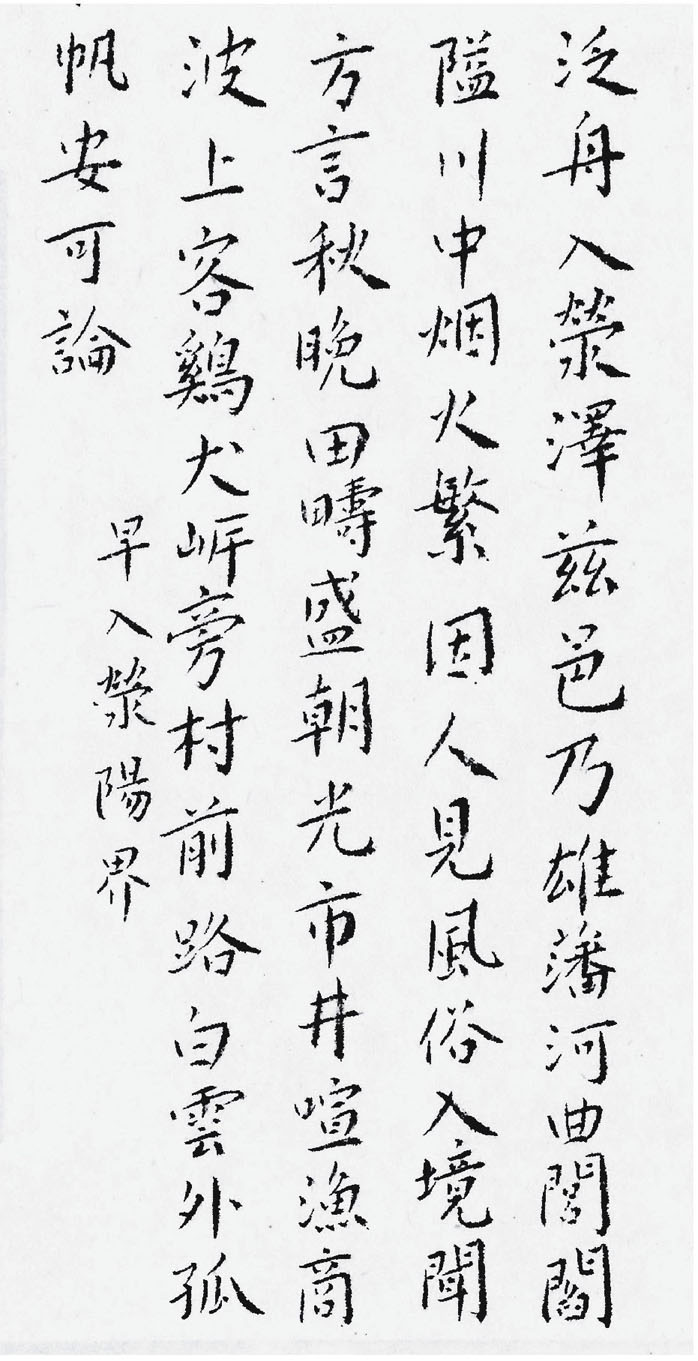 泛舟入滎澤茲邑乃雄藩河曲閭閻
隘川中烟火繁因人見風俗入境聞
方言秋晚田疇盛朝光市井喧漁商
波上客鷄犬岸旁村前路白雲外孤
帆安可論
早入滎陽界